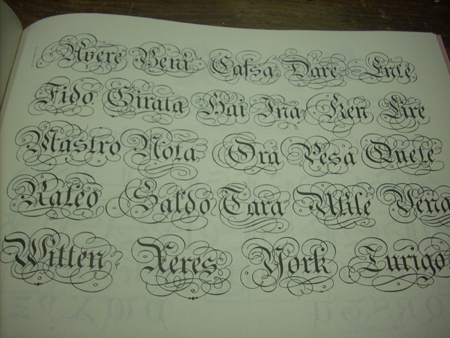 Avere Beni Caſsa Dare Ente
Fido Girata Hai Ina Ken Lire
Mastro Nota Ora Pesa
Rateo Saldo Tara Utile
Witten Xeres York Zurigo